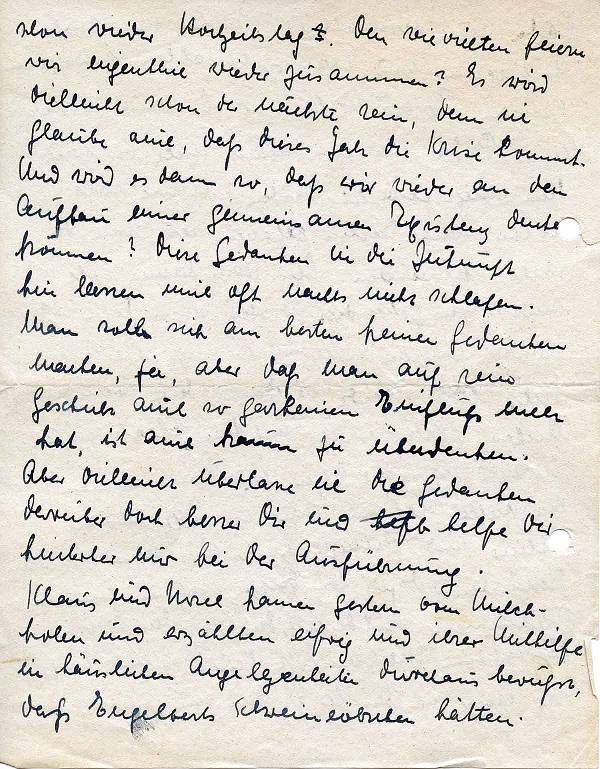 schon wieder Hochzeitstag. Den wievielten feiern
wir eigentlich wieder zusammen? Es wird
vielleicht schon der nächste sein, denn ich
glaube auch, daß dieses Jahr die Krise kommt.
Und wird es dann so, daß wir wieder an den
Aufbau einer gemeinsamen Existenz denken
können? Diese Gedanken in die Zukunft
hin lassen mich oft nachts nicht schlafen.
Man sollte sich am besten keine Gedanken
machen, aber daß man auf sein
Geschick auch so gar keinen Einfluß mehr
hat, ist auch kaum zu überdenken.
Aber vielleicht überlasse ich die Gedanken
darüber doch besser Dir und helfe Dir
hinterher nur bei der Ausführung.
Klaus und kamen gestern vom Milch-
holen und erzählten eifrig und ihrer Mithilfe
in häuslichen Angelegenheiten durchaus bewußt,
daß Engelberts Schweine hätten.